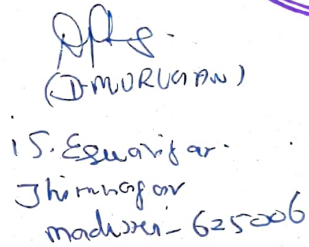 (D-MURUGAN)
15. Eswarifar.
Thirunagar
madurai - 625006